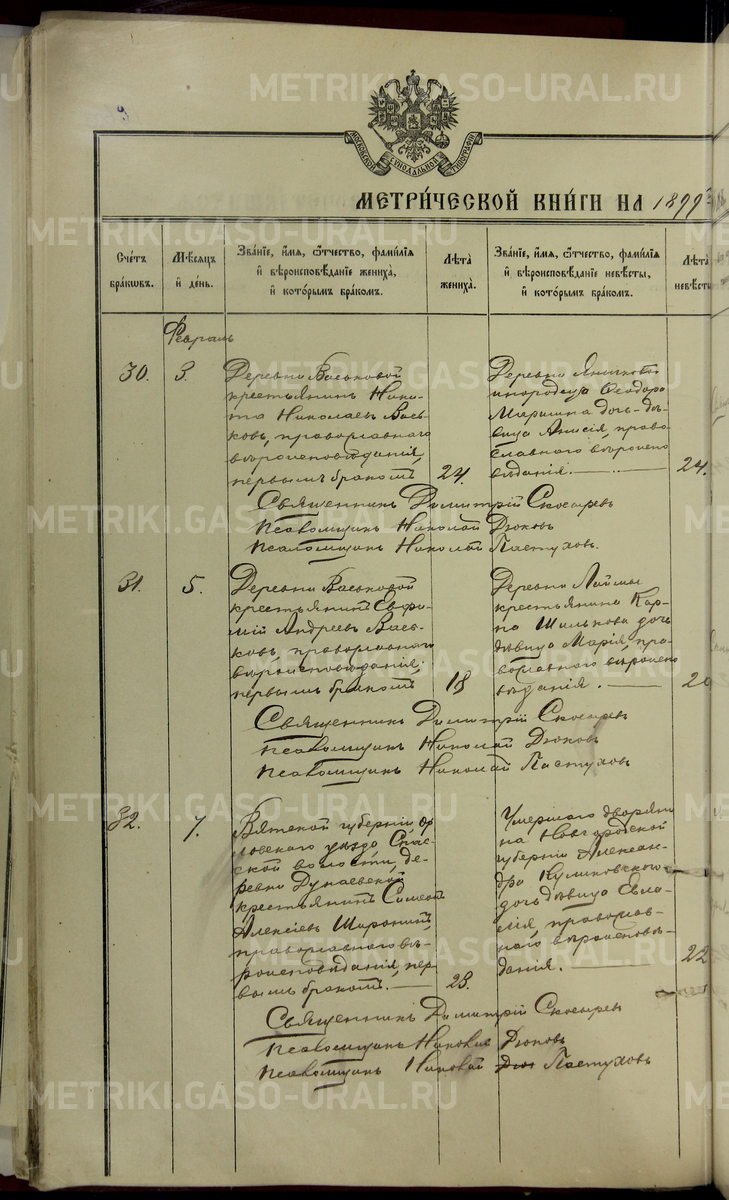 METRIKI.GASO-URAL.RU
МОСКОВСКОЙ СУНОДАЛЬНОЙ ТИПОГРАФІИ
МЕТРИ́ЧЕСКОЙ КНИ́ГИ НА 1899
Сче́тъ бра́кѡвъ.
Мѣ́сѧцъ и҆ де́нь.
Зва́нїе, и҆́мѧ, ѻ҆́тчество, фами́лїѧ и҆ вѣроисповѣ́данїе жениха̀, и҆ кото́рымъ бра́комъ.
Лѣ́та жениха̀.
Зва́нїе, и҆́мѧ, ѻ҆́тчество, фами́лїѧ и҆ вѣроисповѣ́данїе невѣ́сты, и҆ кото́рымъ бра́комъ.
Лѣ́та невѣ́сты
Февраль
30.
3.
Деревни Васьковой
крестьянинъ Ники-
та Николаевъ Вась-
ковъ, православнаго
вѣроисповѣданія,
первымъ бракомъ
24.
Деревни
инородца Ѳеодора
Маршина дочь дѣ-
вица Анисія, право
славнаго вѣроиспо
вѣданія.
24.
Священникъ Димитрій Скосыревъ
Псаломщикъ Николай Дюковъ
Псаломщикъ Николай Пастуховъ.
31.
5.
Деревни Васьковой
крестьянинъ Евфи-
мій Андреевъ Вась-
ковъ, православнаго
вѣроисповѣданія,
первымъ бракомъ
18
Деревни Лаймы
крестьянина Кар-
па Шилкова дочь
дѣвица Марія, пра-
вославнаго вѣроиспо
вѣданія.
20
Священникъ Димитрій Скосыревъ
Псаломщикъ Николай Дюковъ
Псаломщикъ Николай Пастуховъ
32.
7.
Вятской губерніи, Ор
ловскаго уѣзда, Спас-
ской волости, де-
ревни Дунаевской
крестьянинъ Симеонъ
Алексѣевъ Широнинъ,
православнаго вѣ-
роисповѣданія, пер
вымъ бракомъ.
28.
Умершаго дворяни
на Новгородской
губерніи Алексан-
дра Куликовскаго
дочь дѣвица Евла-
лія, православ-
наго вѣроисповѣ-
данія.
22
Священникъ Димитрій Скосыревъ
Псаломщикъ Николай Дюковъ
Псаломщикъ Николай Пастуховъ